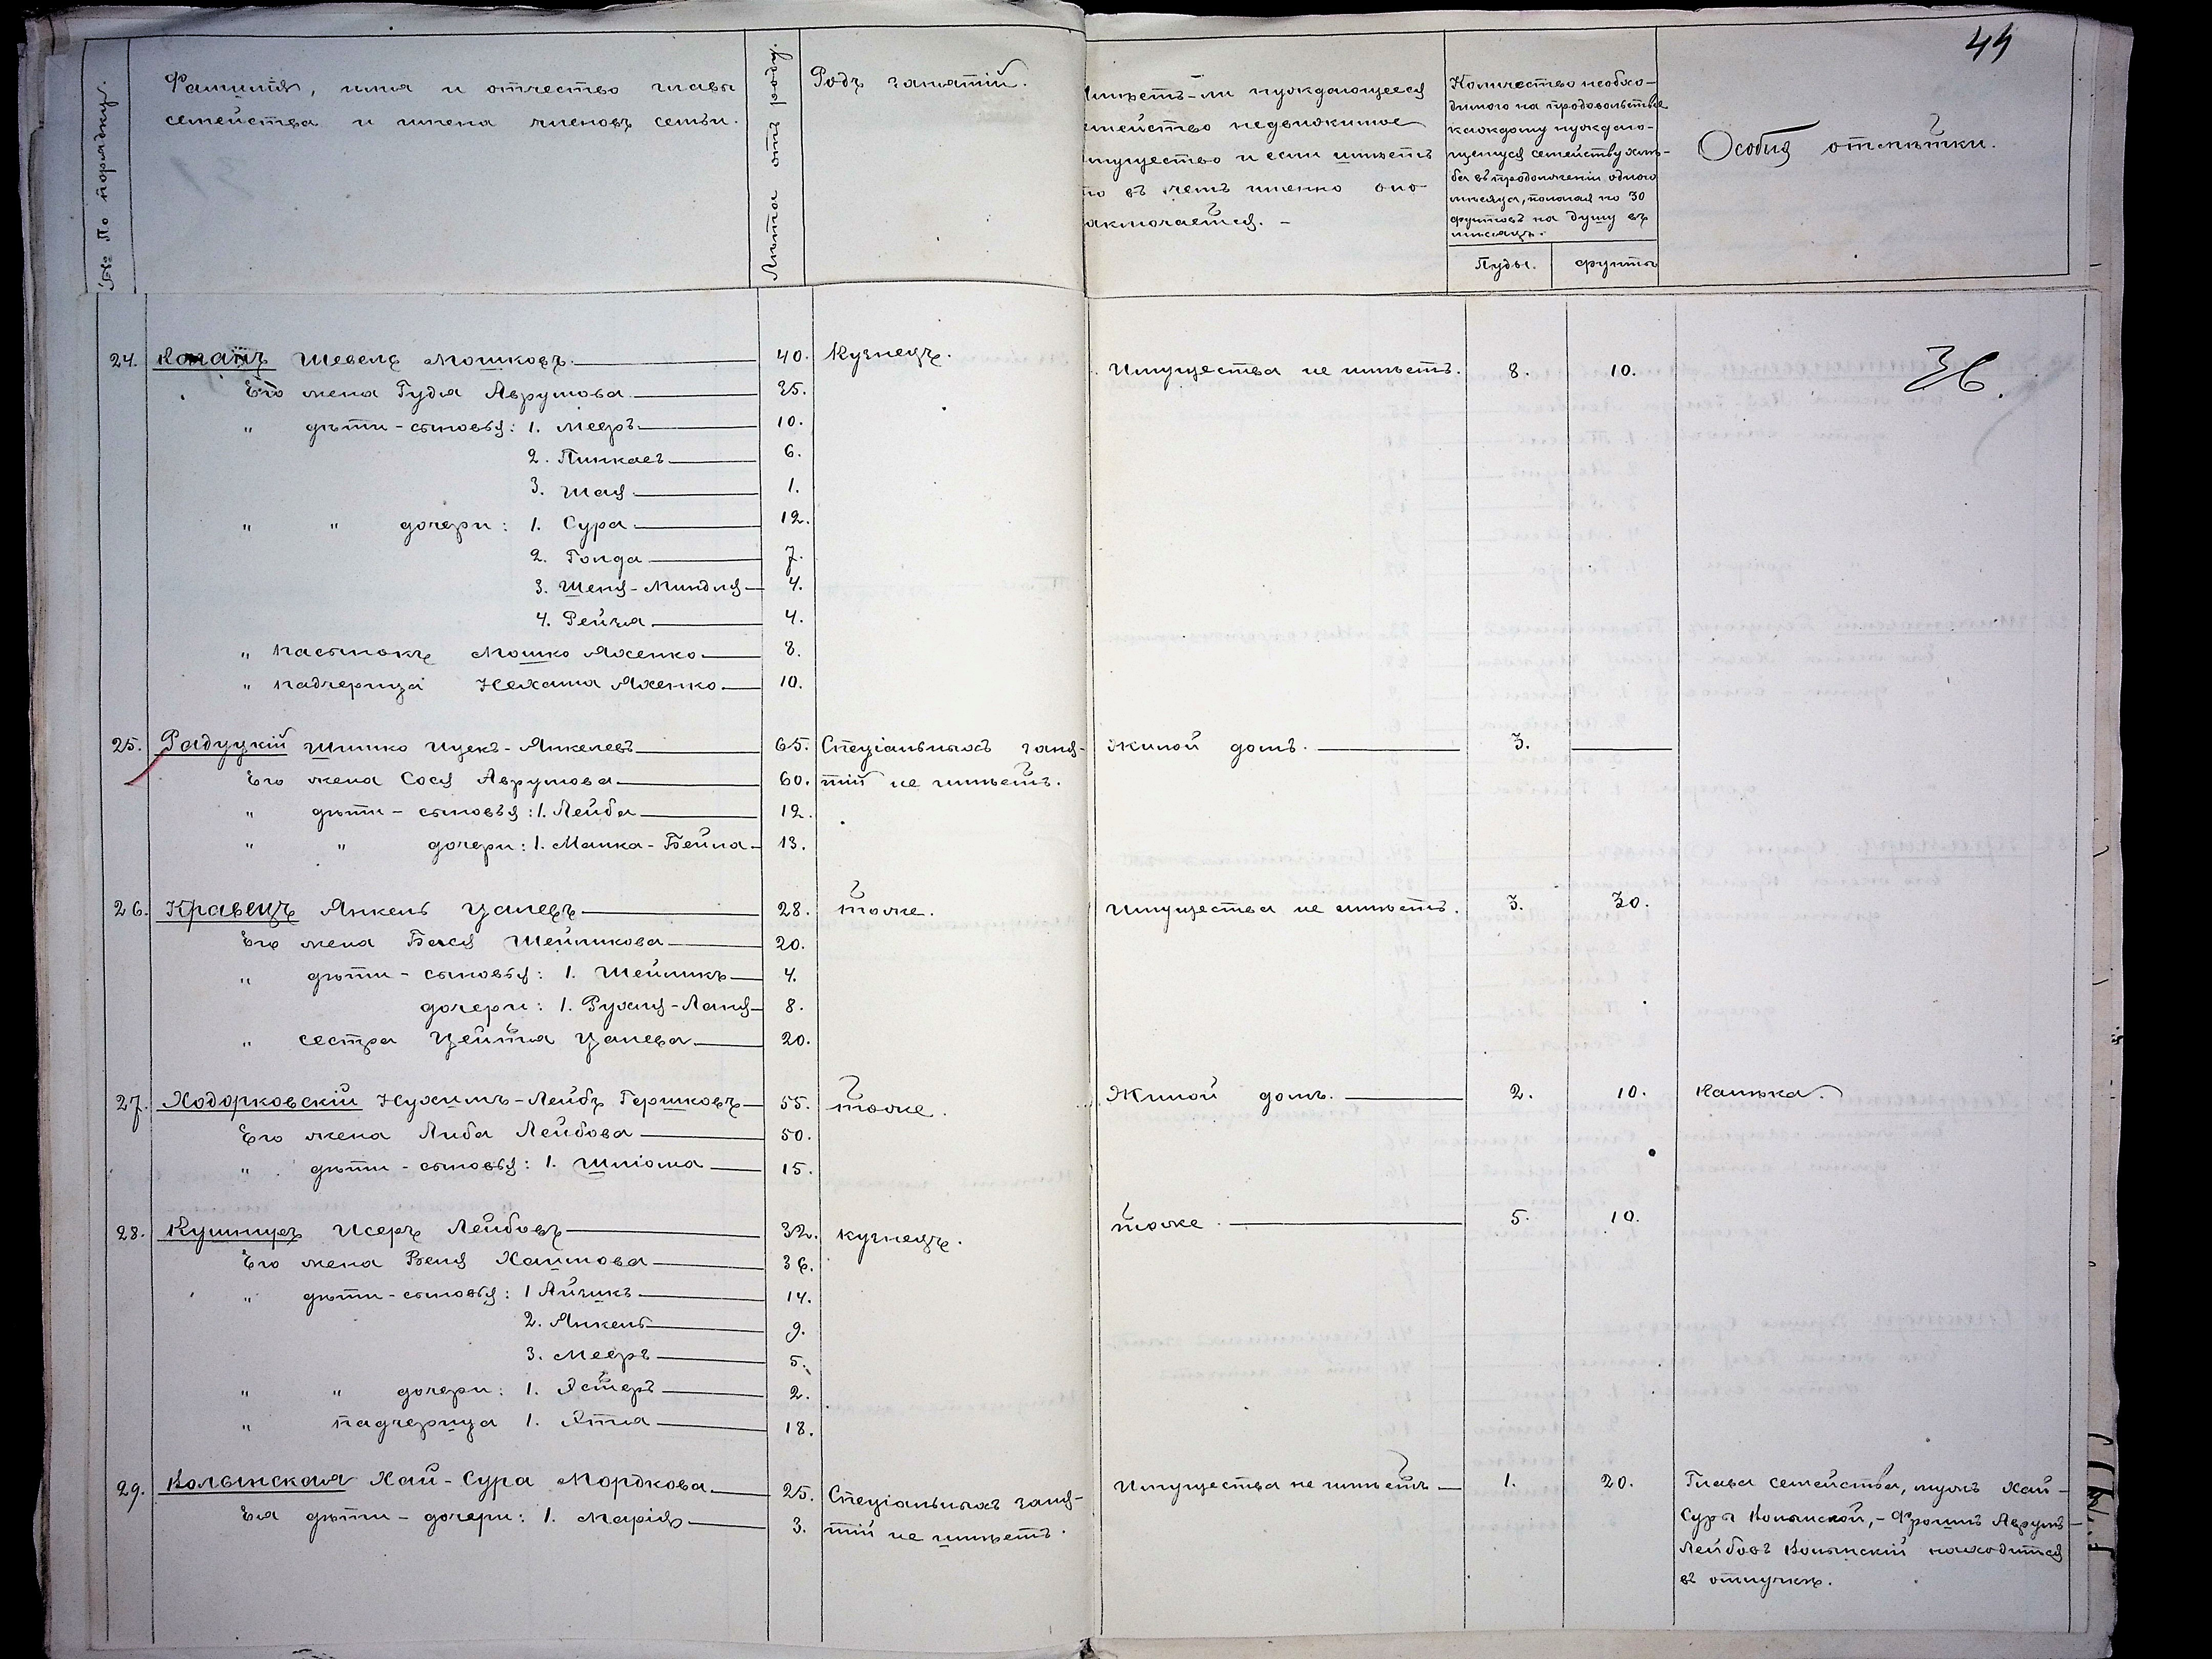 44
№№ По порядку.
Фамилія, имя и отчество главы
семейства и имена членовъ семьи.
Лѣта отъ роду.
Родъ занятій.
Имѣетъ-ли нуждающееся
семейство недвижимое
имущество и если имѣетъ
то въ чемъ именно оно
заключается. -
Количество необхо-
димаго на продовольствіе
каждому нуждаю-
щемуся семейству хлѣ-
ба въ продолженіи одного
мѣсяца, полагая по 30
фунтовъ на душу въ
мѣсяцъ.
Пуды. фунты
Особыя отмѣтки.
24. Коганъ Шевель Мошковъ. 40. Кузнецъ. Имущества не имѣетъ. 8. 10. 36.
Его жена Гудля Аврумова 35.
" дѣти - сыновья: 1. Мееръ 10.
2. Пинкасъ 6.
3. Шая 1.
" " дочери: 1. Сура 12.
2. Голда 7.
3. Шейня-Миндля 4.
4. Рейзя 4.
" пасынокъ Мошко Яхенко 8.
" падчерица Нехама Яхенко 10.
25. Радуцкій Шимко Ицекъ-Янкелевъ 65. Спеціальныхъ заня- Жилой домъ. 3.
Его жена Сося Аврумова 60. тій не имѣетъ.
" дѣти - сыновья: 1. Лейба 12.
" " дочери: 1. Малка-Бейла 13.
26. Кравецъ Янкель Цалевъ 28. тоже. Имущества не имѣетъ. 3. 30.
Его жена Бася Шейликова 20.
" дѣти - сыновья: 1. Шейликъ 4.
дочери: 1. Рухля-Лая 8.
" сестра Цейтля Цалева 20.
27. Ходорковскій Нухимъ-Лейбъ Гершковъ 55. тоже. Жилой домъ. 2. 10. Калѣка.
Его жена Либа Лейбова 50.
" дѣти - сыновья: 1. Шліома 15.
28. Кушниръ Исеръ Лейбовъ 32. кузнецъ. тоже. 5. 10.
Его жена Беня Хаимова 36.
" дѣти - сыновья: 1 Айзикъ 14.
2. Янкель 9.
3. Мееръ 5.
" " дочери: 1. Эстеръ 2.
" падчерица 1. Этля 18.
29. Волынская Хай-Сура Мордкова 25. Спеціальныхъ заня- Имущества не имѣетъ 1. 20. Глава семейства, мужъ Хай-
Ея дѣти - дочери: 1. Марія 3. тій не имѣетъ. Суры Волынской, - Фроимъ Аврумъ-
Лейбовъ Волынскій находится
въ отлучкѣ.